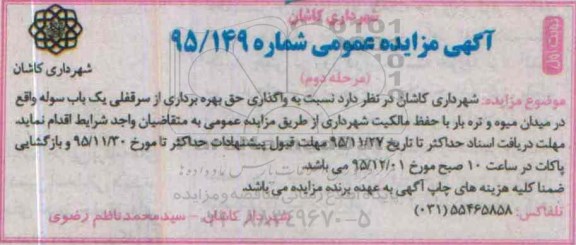 شهرداری کاشان
نوبت اول
آگهی مزایده عمومی شماره ۹۵/۱۴۹
(مرحله دوم)
شهرداری کاشان
موضوع مزایده: شهرداری کاشان در نظر دارد نسبت به واگذاری حق بهره برداری از سرقفلی یک باب سوله واقع
در میدان میوه و تره بار با حفظ مالکیت شهرداری از طریق مزایده عمومی به متقاضیان واجد شرایط اقدام نماید.
مهلت دریافت اسناد حداکثر تا تاریخ ۹۵/۱۱/۲۷ مهلت قبول پیشنهادات حداکثر تا مورخ ۹۵/۱۱/۳۰ و بازگشایی
پاکات در ساعت ۱۰ صبح مورخ ۹۵/۱۲/۰۱ می باشد.
ضمنا کلیه هزینه های چاپ آگهی به عهده برنده مزایده می باشد.
تلفاکس: ۵۵۴۶۵۸۵۸ (۰۳۱)
شهردار کاشان - سیدمحمدناظم رضوی